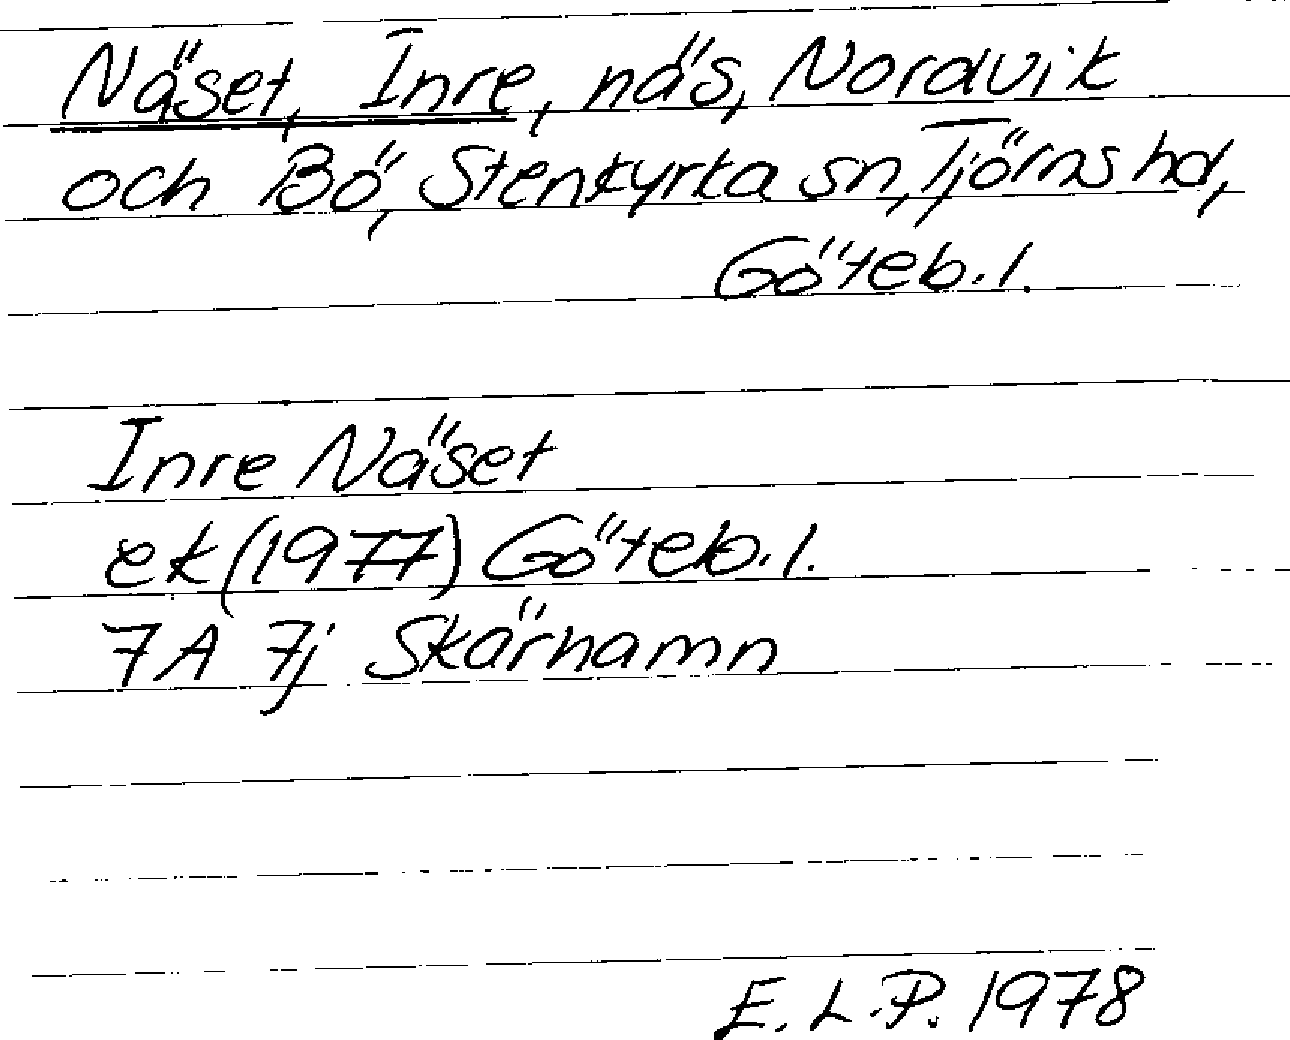 Näset, Inre, näs, Nordvik
och Bö, Stenkyrka sn, Tjörns hd,
Göteb. l.
Inre Näset
ek (1977) Göteb. l.
7A 7j Skärhamn
E. L. P. 1978